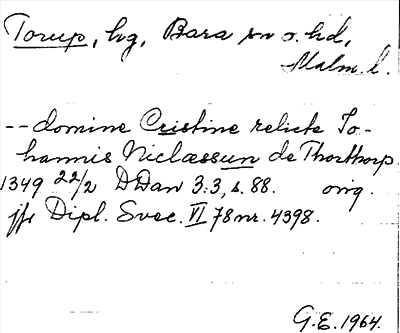 Torup, hg, Bara sn o. hd,
Malm. l.
-- domine Cristine relicte Jo-
hannis Niclæssun de Thorthorp.
1349 22/2 DDan 3:3, s. 88. orig.
jfr Dipl. Svec. VI 78 nr. 4398.
G.E. 1964.